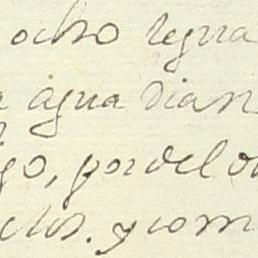 ocho legua
agua dian
go, por el o
ctos. y com